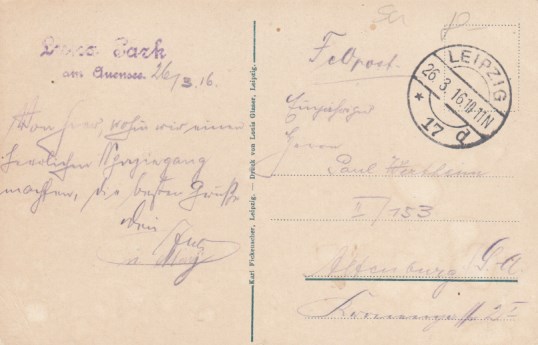 Luna Park
am Auensee. 26/3.16.
Von hier, wohin wir einen
herrlichen Spaziergang
machten, die besten Grüße
Dein
Karl Pickenhahn, Leipzig. — Druck von Louis Glaser, Leipzig.
Feldpost.
LEIPZIG
26.3.16.10-11N
* 17 d
Herrn
Paul
I/153
Altenburg S/A
2 I